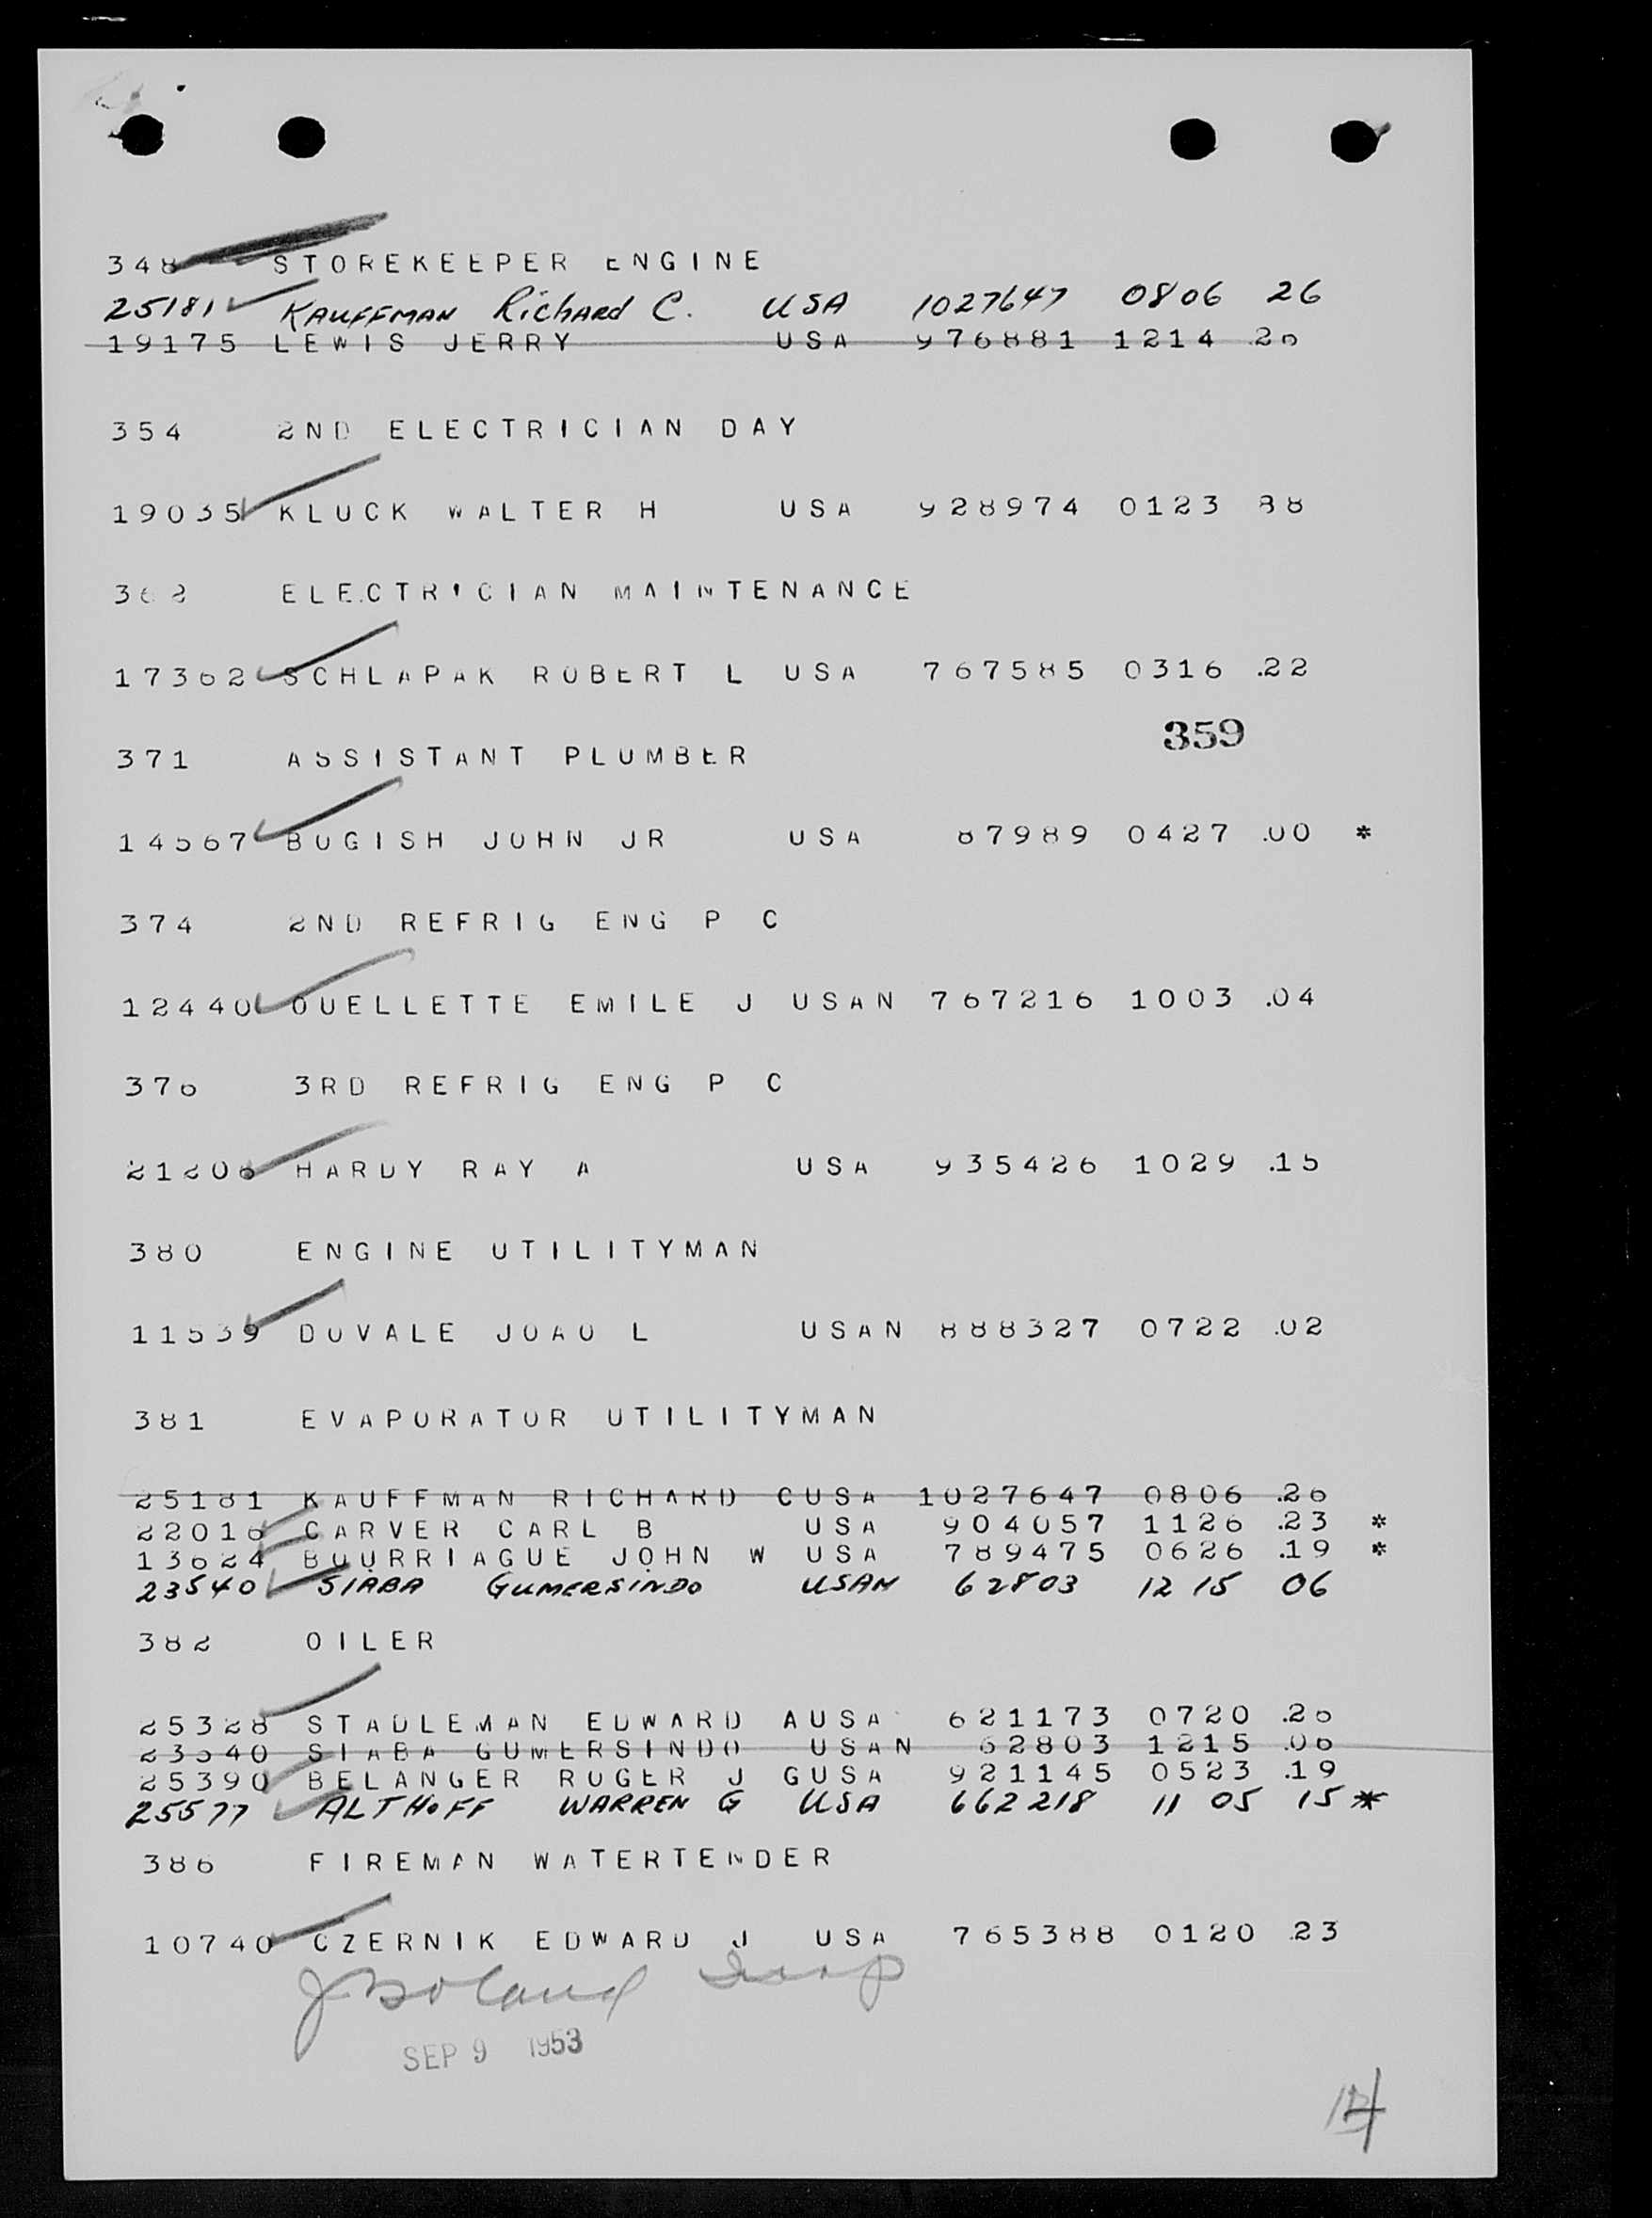 348 STOREKEEPER ENGINE
25181 KAUFFMAN Richard C. USA 1027647 0806 26
19175 LEWIS JERRY USA 976881 1214 .26
354 2ND ELECTRICIAN DAY
19035 KLUCK WALTER H USA 928974 0123 88
362 ELECTRICIAN MAINTENANCE
17362 SCHLAPAK ROBERT L USA 767585 0316 .22
359
371 ASSISTANT PLUMBER
14567 BOGISH JOHN JR USA 87989 0427 .00 *
374 2ND REFRIG ENG P C
12440 OUELLETTE EMILE J USAN 767216 1003 .04
376 3RD REFRIG ENG P C
21206 HARDY RAY A USA 935426 1029 .15
380 ENGINE UTILITYMAN
11539 DOVALE JOAO L USAN 888327 0722 .02
381 EVAPORATOR UTILITYMAN
25181 KAUFFMAN RICHARD CUSA 1027647 0806 .26
22016 CARVER CARL B USA 904057 1126 .23 *
13624 BOURRIAGUE JOHN W USA 789475 0626 .19 *
23540 SIABA GUMERSINDO USAN 62803 12 15 06
382 OILER
25328 STADLEMAN EDWARD AUSA 621173 0720 .26
23540 SIABA GUMERSINDO USAN 62803 1215 .06
25390 BELANGER ROGER J GUSA 921145 0523 .19
25577 ALTHOFF WARREN G USA 662218 11 05 15 *
386 FIREMAN WATERTENDER
10740 CZERNIK EDWARD J USA 765388 0120 .23
SEP 9 1953